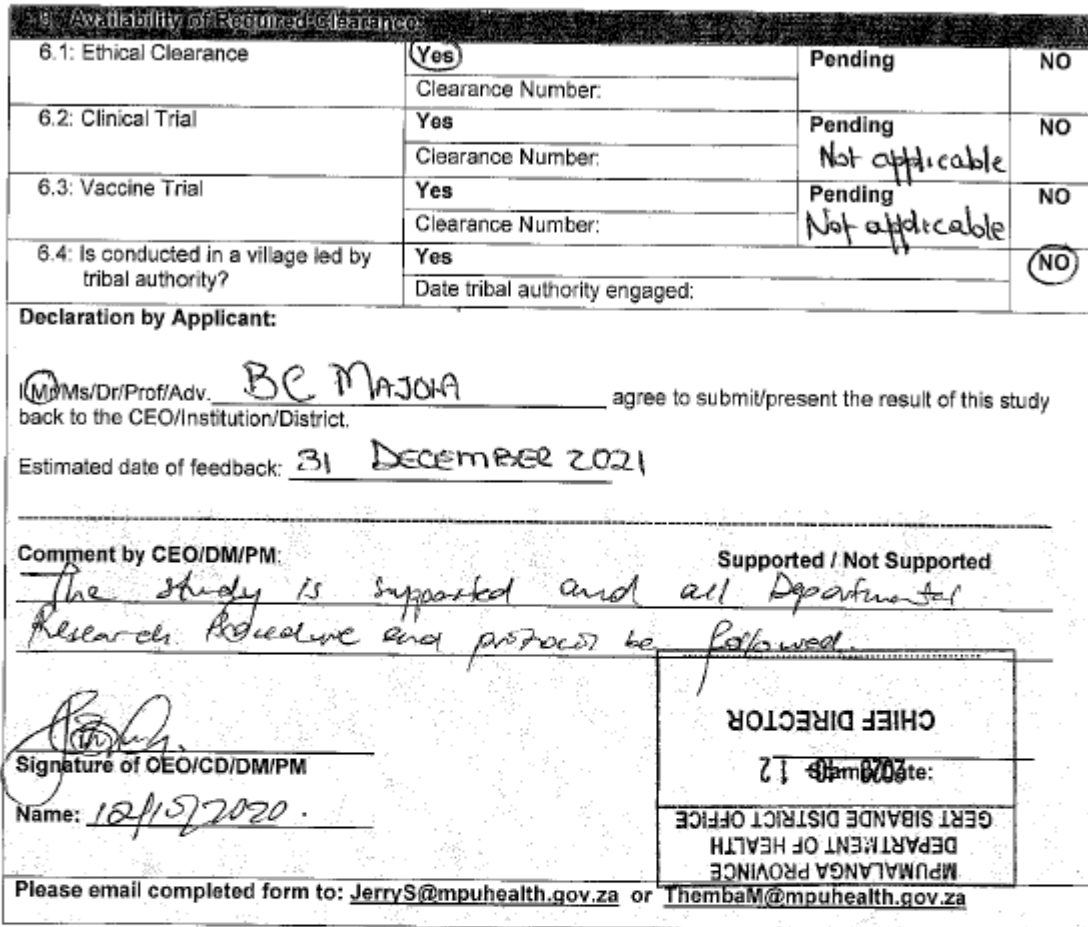 6: Availability of Required Clearance:
6.1: Ethical Clearance Yes Pending NO
Clearance Number:
6.2: Clinical Trial Yes Pending NO
Clearance Number: Not applicable
6.3: Vaccine Trial Yes Pending NO
Clearance Number: Not applicable
6.4: Is conducted in a village led by Yes NO
tribal authority? Date tribal authority engaged:
Declaration by Applicant:
I Mr/Ms/Dr/Prof/Adv. BC MAJOLA agree to submit/present the result of this study
back to the CEO/Institution/District.
Estimated date of feedback: 31 DECEMBER 2021
Comment by CEO/DM/PM: Supported / Not Supported
The study is supported and all Departmental
Research Procedure and protocol be followed.
Signature of CEO/CD/DM/PM
Name: 12/10/2020.
Stamp/Date:
MPUMALANGA PROVINCE
DEPARTMENT OF HEALTH
GERT SIBANDE DISTRICT OFFICE
2020 -10- 12
CHIEF DIRECTOR
Please email completed form to: JerryS@mpuhealth.gov.za or ThembaM@mpuhealth.gov.za